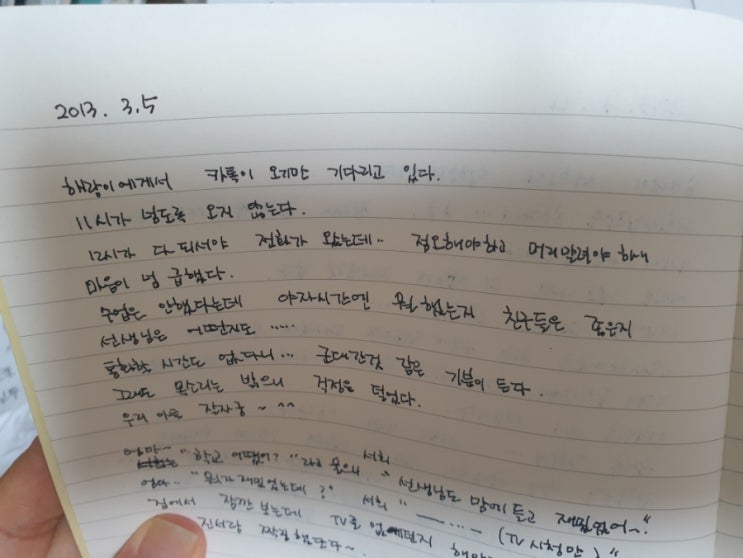 2013. 3.5
해광이에게서 카톡이 오기만 기다리고 있다.
11시가 넘도록 오지 않는다.
12시가 다 되서야 전화가 왔는데.. 점호해야하고 머리말려야 하니
마음이 넘 급했다.
수업은 안했다는데 야자시간엔 뭘 했는지 친구들은 좋은지
선생님은 어떤지도 .....
통화할 시간도 없다니... 군대간것 같은 기분이 든다.
그래도 목소리는 밝으니 걱정을 덜었다.
우리 아들 잘자 ~ ^^
엄마~ "학교 어땠어?" 라고 물으니 서희 "선생님도 맘에 들고 재밌었어~"
엄마.. "뭐가 재밌었는데?" 서희 "ㅡ...- (TV 시청만)"
집에서 잠깐 보는데 TV로